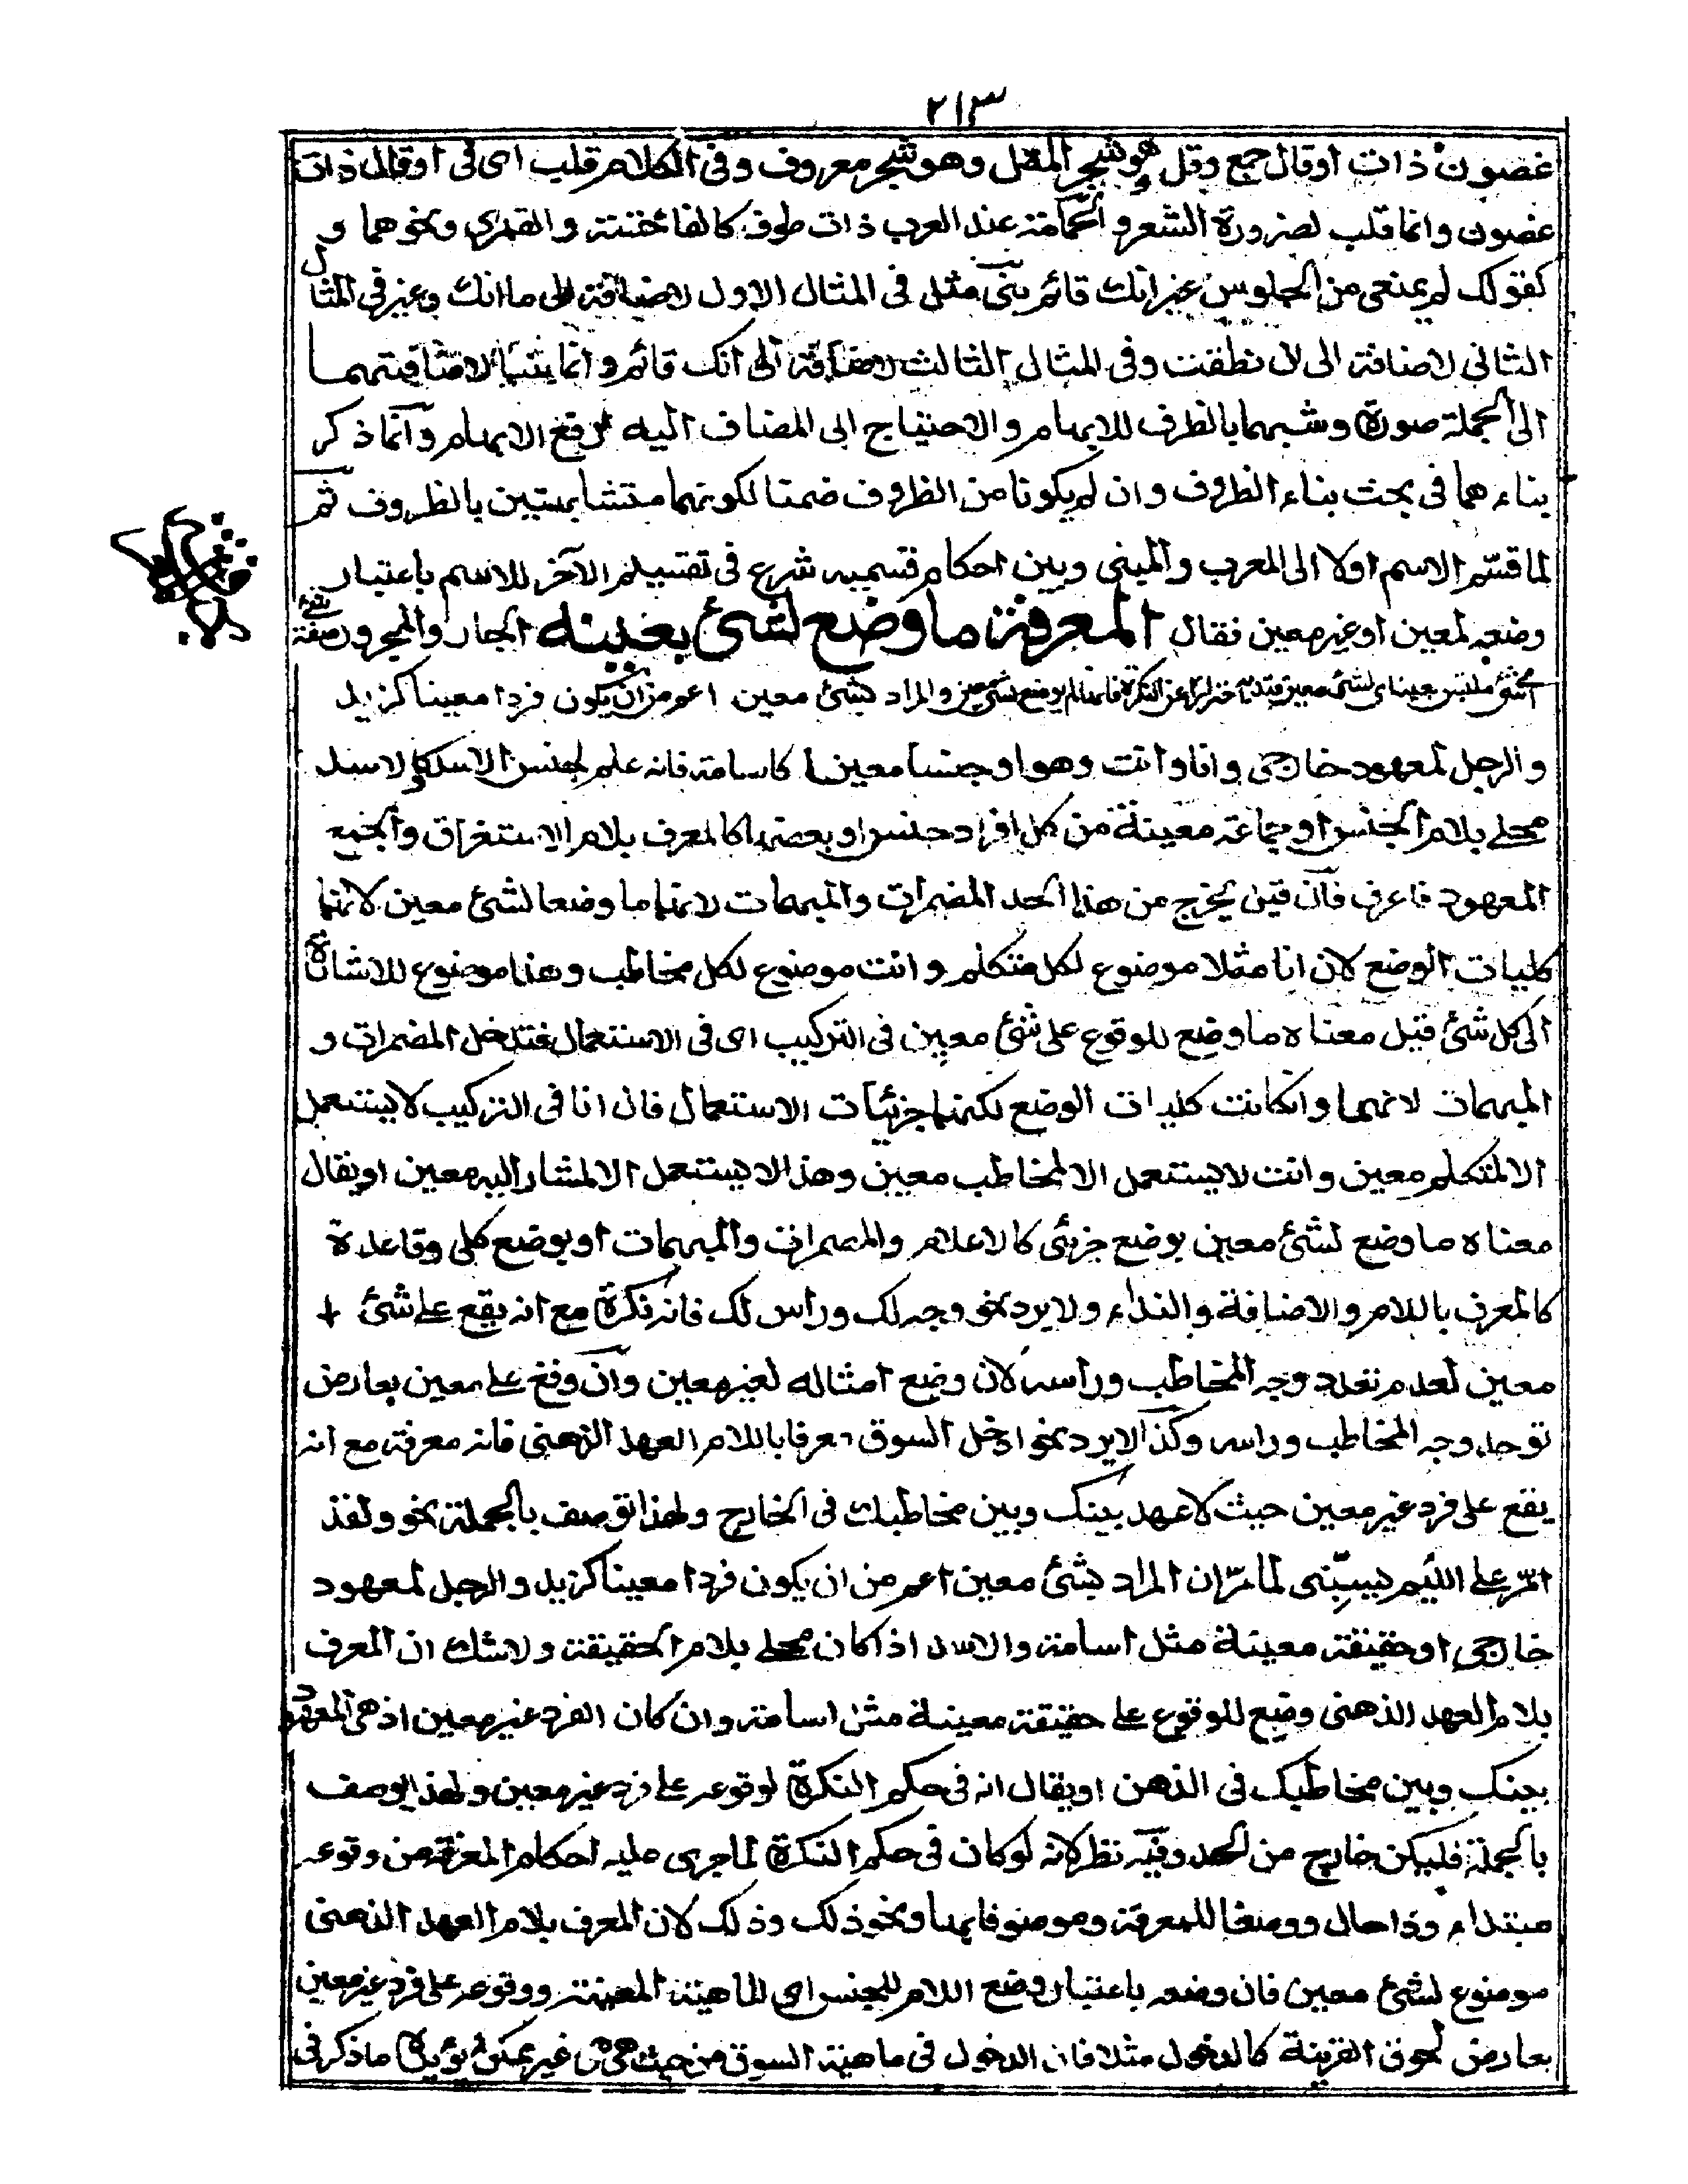 ٢١٣
غصون ذات اوقال جمع وقل هو شجر المقل وهو شجر معروف وفى الكلام قلب اى فى اوقال ذات
غصون وانما قلب لضرورة الشعر و الحمامة عند العرب ذات طوق كالفاختة والقمرى ونحوهما و
كقولك لم يمنعى من الجلوس غير انك قائم بنى مثل فى المثال الاول لاضافته الى ما انك وغير فى المثال
الثانى لاضافته الى ان نطقت وفى المثال الثالث لاضافته الى انك قائم وانما بنيا لاضافتهما
الى الجملة صورة وشبههما بالظرف للابهام والاحتياج الى المضاف اليه لرفع الابهام وانما ذكر
بناء هما فى بحث بناء الظروف وان لم يكونا من الظروف ضمنا لكونهما متشابهتين بالظروف ثم
لما قسّم الاسم اولا الى المعرب والمبنى وبين احكام قسميه شرع فى تقسيم الآخر للاسم باعتبار
وضعه لمعين او غير معين فقال المعرفة ما وضع لشئ بعينه الجار والمجرور صفة
لشئ ملتبس بعينه اى لشئ معين احترازا عن النكرة فانها لم يوضع لشئ معين والمراد بشئ معين اعم من ان يكون فردا معينا كزيد
والرجل لمعهود خارجى وانا وانت وهو او جنسا معينا كاسامة فانه علم لجنس الاسد كالاسد
محلے بلام الجنس او جماعة معينة من كل افراد جنس او بعضها كالمعرف بلام الاستغراق والجمع
المعهود فاعرف فان قيل يخرج من هذا الحد المضمرات والمبهمات لانها ما وضعا لشئ معين لانها
كليات الوضع لان انا مثلا موضوع لكل متكلم وانت موضوع لكل مخاطب وهذا موضوع للاشارة
الى كل شئ قيل معناه ما وضع للوقوع على شئ معين فى التركيب اى فى الاستعمال فتدخل المضمرات و
المبهمات لانهما وان كانت كليات الوضع لكنها جزئيات الاستعمال فان انا فى التركيب لا يستعمل
الا لمتكلم معين وانت لا يستعمل الا لمخاطب معين وهذا لا يستعمل الا لمشار اليه معين او يقال
معناه ما وضع لشئ معين بوضع جزئى كالاعلام والمضمرات والمبهمات او بوضع كلى وقاعدة
كالمعرف باللام والاضافة والنداء ولا يرد نحو وجه لك وراس لك فانه نكرة مع انه يقع على شئ
معين لعدم تعدد وجه المخاطب وراسه لان وضع امثاله لغير معين وان وقع على معين بعارض
توحد وجه المخاطب وراسه وكذا لا يرد نحو ادخل السوق معرفا باللام العهد الذهنى فانه معرفة مع انه
يقع على فرد غير معين حيث لا عهد بينك وبين مخاطبك فى الخارج ولهذا توصف بالجملة نحو ولقد
امرّ على اللئيم يسبّنى لما مرّ ان المراد بشئ معين اعم من ان يكون فردا معينا كزيد والرجل لمعهود
خارجى او حقيقة معينة مثل اسامة والاسد اذا كان محلے بلام الحقيقة ولا شك ان المعرف
بلام العهد الذهنى وضع للوقوع على حقيقة معينة مثل اسامة وان كان الفرد غير معين اذ هى المعهود
بينك وبين مخاطبك فى الذهن او يقال انه فى حكم النكرة لوقوعه على فرد غير معين ولهذا يوصف
بالجملة فليكن خارج من الحد وفيه نظر لانه لو كان فى حكم النكرة لما جرى عليه احكام المعرفة من وقوعه
مبتداء وذا حال ووصفا للمعرفة وموصوفا بها ونحو ذلك وذلك لان المعرف بلام العهد الذهنى
موضوع لشئ معين فان وضعه باعتبار وضع اللام للجنس اى للماهية المعينة ووقوعه على فرد غير معين
بعارض لحوق القرينة كالدخول مثلا فان الدخول فى ماهية السوق من حيث هى هى غير ممكن يؤيده ما ذكر فى